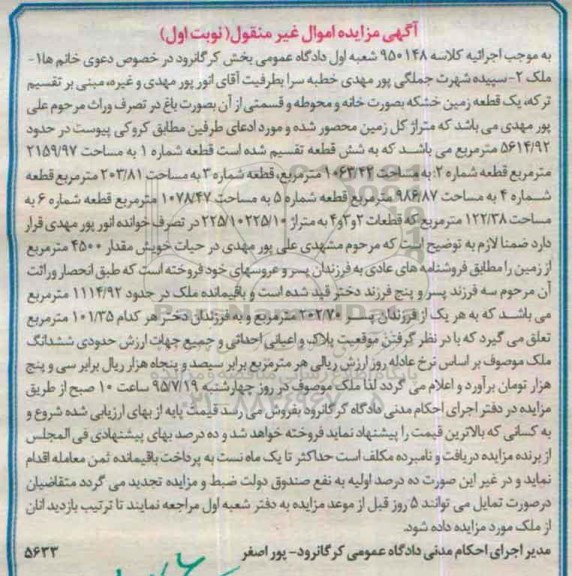 آگهی مزایده اموال غیر منقول( نوبت اول)
به موجب اجرائیه کلاسه ۹۵۰۱۴۸ شعبه اول دادگاه عمومی بخش کرگانرود در خصوص دعوی خانم ها۱-
ملک ۲- سپیده شهرت جملگی پور مهدی خطبه سرا بطرفیت آقای انور پور مهدی و غیره، مبنی بر تقسیم
ترکه، یک قطعه زمین خشکه بصورت خانه و محوطه و قسمتی از آن بصورت باغ در تصرف وراث مرحوم علی
پور مهدی می باشد که متراژ کل زمین محصور شده و مورد ادعای طرفین مطابق کروکی پیوست در حدود
۵۶۱۴/۹۲ مترمربع می باشد که به شش قطعه تقسیم شده است قطعه شماره ۱ به مساحت ۲۱۵۹/۹۷
مترمربع قطعه شماره ۲: به مساحت ۱۰۶۳/۴۲ مترمربع، قطعه شماره ۳ به مساحت ۲۰۳/۸۱ مترمربع قطعه
شماره ۴ به مساحت ۹۸۶/۸۷ مترمربع قطعه شماره ۵ به مساحت ۱۰۷۸/۴۷ مترمربع قطعه شماره ۶ به
مساحت ۱۲۲/۳۸ مترمربع که قطعات ۲و۳و۴ به متراژ ۲۲۵/۱۰۲۲۵/۱۰ در تصرف خوانده انور پور مهدی قرار
دارد ضمنا لازم به توضیح است که مرحوم مشهدی علی پور مهدی در حیات خویش مقدار ۴۵۰۰ مترمربع
از زمین را مطابق فروشنامه های عادی به فرزندان پسر و عروسهای خود فروخته است که طبق انحصار وراثت
آن مرحوم سه فرزند پسر و پنج فرزند دختر قید شده است و باقیمانده ملک در حدود ۱۱۱۴/۹۲ مترمربع
می باشد که به هر یک از فرزندان پسر ۲۰۲/۷۰ مترمربع و به فرزندان دختر هر کدام ۱۰۱/۳۵ مترمربع
تعلق می گیرد که با در نظر گرفتن موقعیت پلاک و اعیانی احداثی و جمیع جهات ارزش حدودی ششدانگ
ملک موصوف بر اساس نرخ عادله روز ارزش ریالی هر مترمربع برابر سیصد و پنجاه هزار ریال برابر سی و پنج
هزار تومان برآورد و اعلام می گردد لذا ملک موصوف در روز چهارشنبه ۹۵/۷/۱۹ ساعت ۱۰ صبح از طریق
مزایده در دفتر اجرای احکام مدنی دادگاه کرگانرود بفروش می رسد قیمت پایه از بهای ارزیابی شده شروع و
به کسانی که بالاترین قیمت را پیشنهاد نماید فروخته خواهد شد و ده درصد بهای پیشنهادی فی المجلس
از برنده مزایده دریافت و نامبرده مکلف است حداکثر تا یک ماه نسبت به پرداخت باقیمانده ثمن معامله اقدام
نماید و در غیر این صورت ده درصد اولیه به نفع صندوق دولت ضبط و مزایده تجدید می گردد متقاضیان
درصورت تمایل می توانند ۵ روز قبل از موعد مزایده به دفتر شعبه اول مراجعه نمایند تا ترتیب بازدید انان
از ملک مورد مزایده داده شود.
مدیر اجرای احکام مدنی دادگاه عمومی کرگانرود- پور اصغر ۵۶۲۳